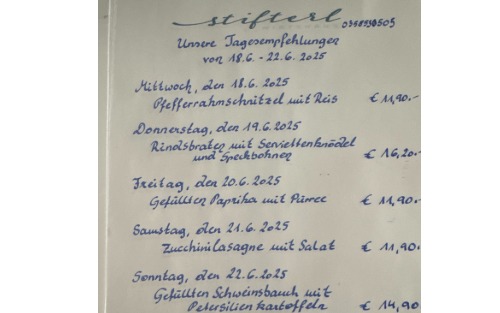 stifterl 0358230505
Unsere Tagesempfehlungen
von 18.6. - 22.6.2025
Mittwoch, den 18.6.2025
Pfefferrahmschnitzel mit Reis € 11,90.-
Donnerstag, den 19.6.2025
Rindsbraten mit Serviettenknödel
und Speckbohnen € 16,20.-
Freitag, den 20.6.2025
Gefüllten Paprika mit Püree € 11,90.-
Samstag, den 21.6.2025
Zucchinilasagne mit Salat € 11,90.-
Sonntag, den 22.6.2025
Gefüllten Schweinsbauch mit
Petersilienkartoffeln € 14,90